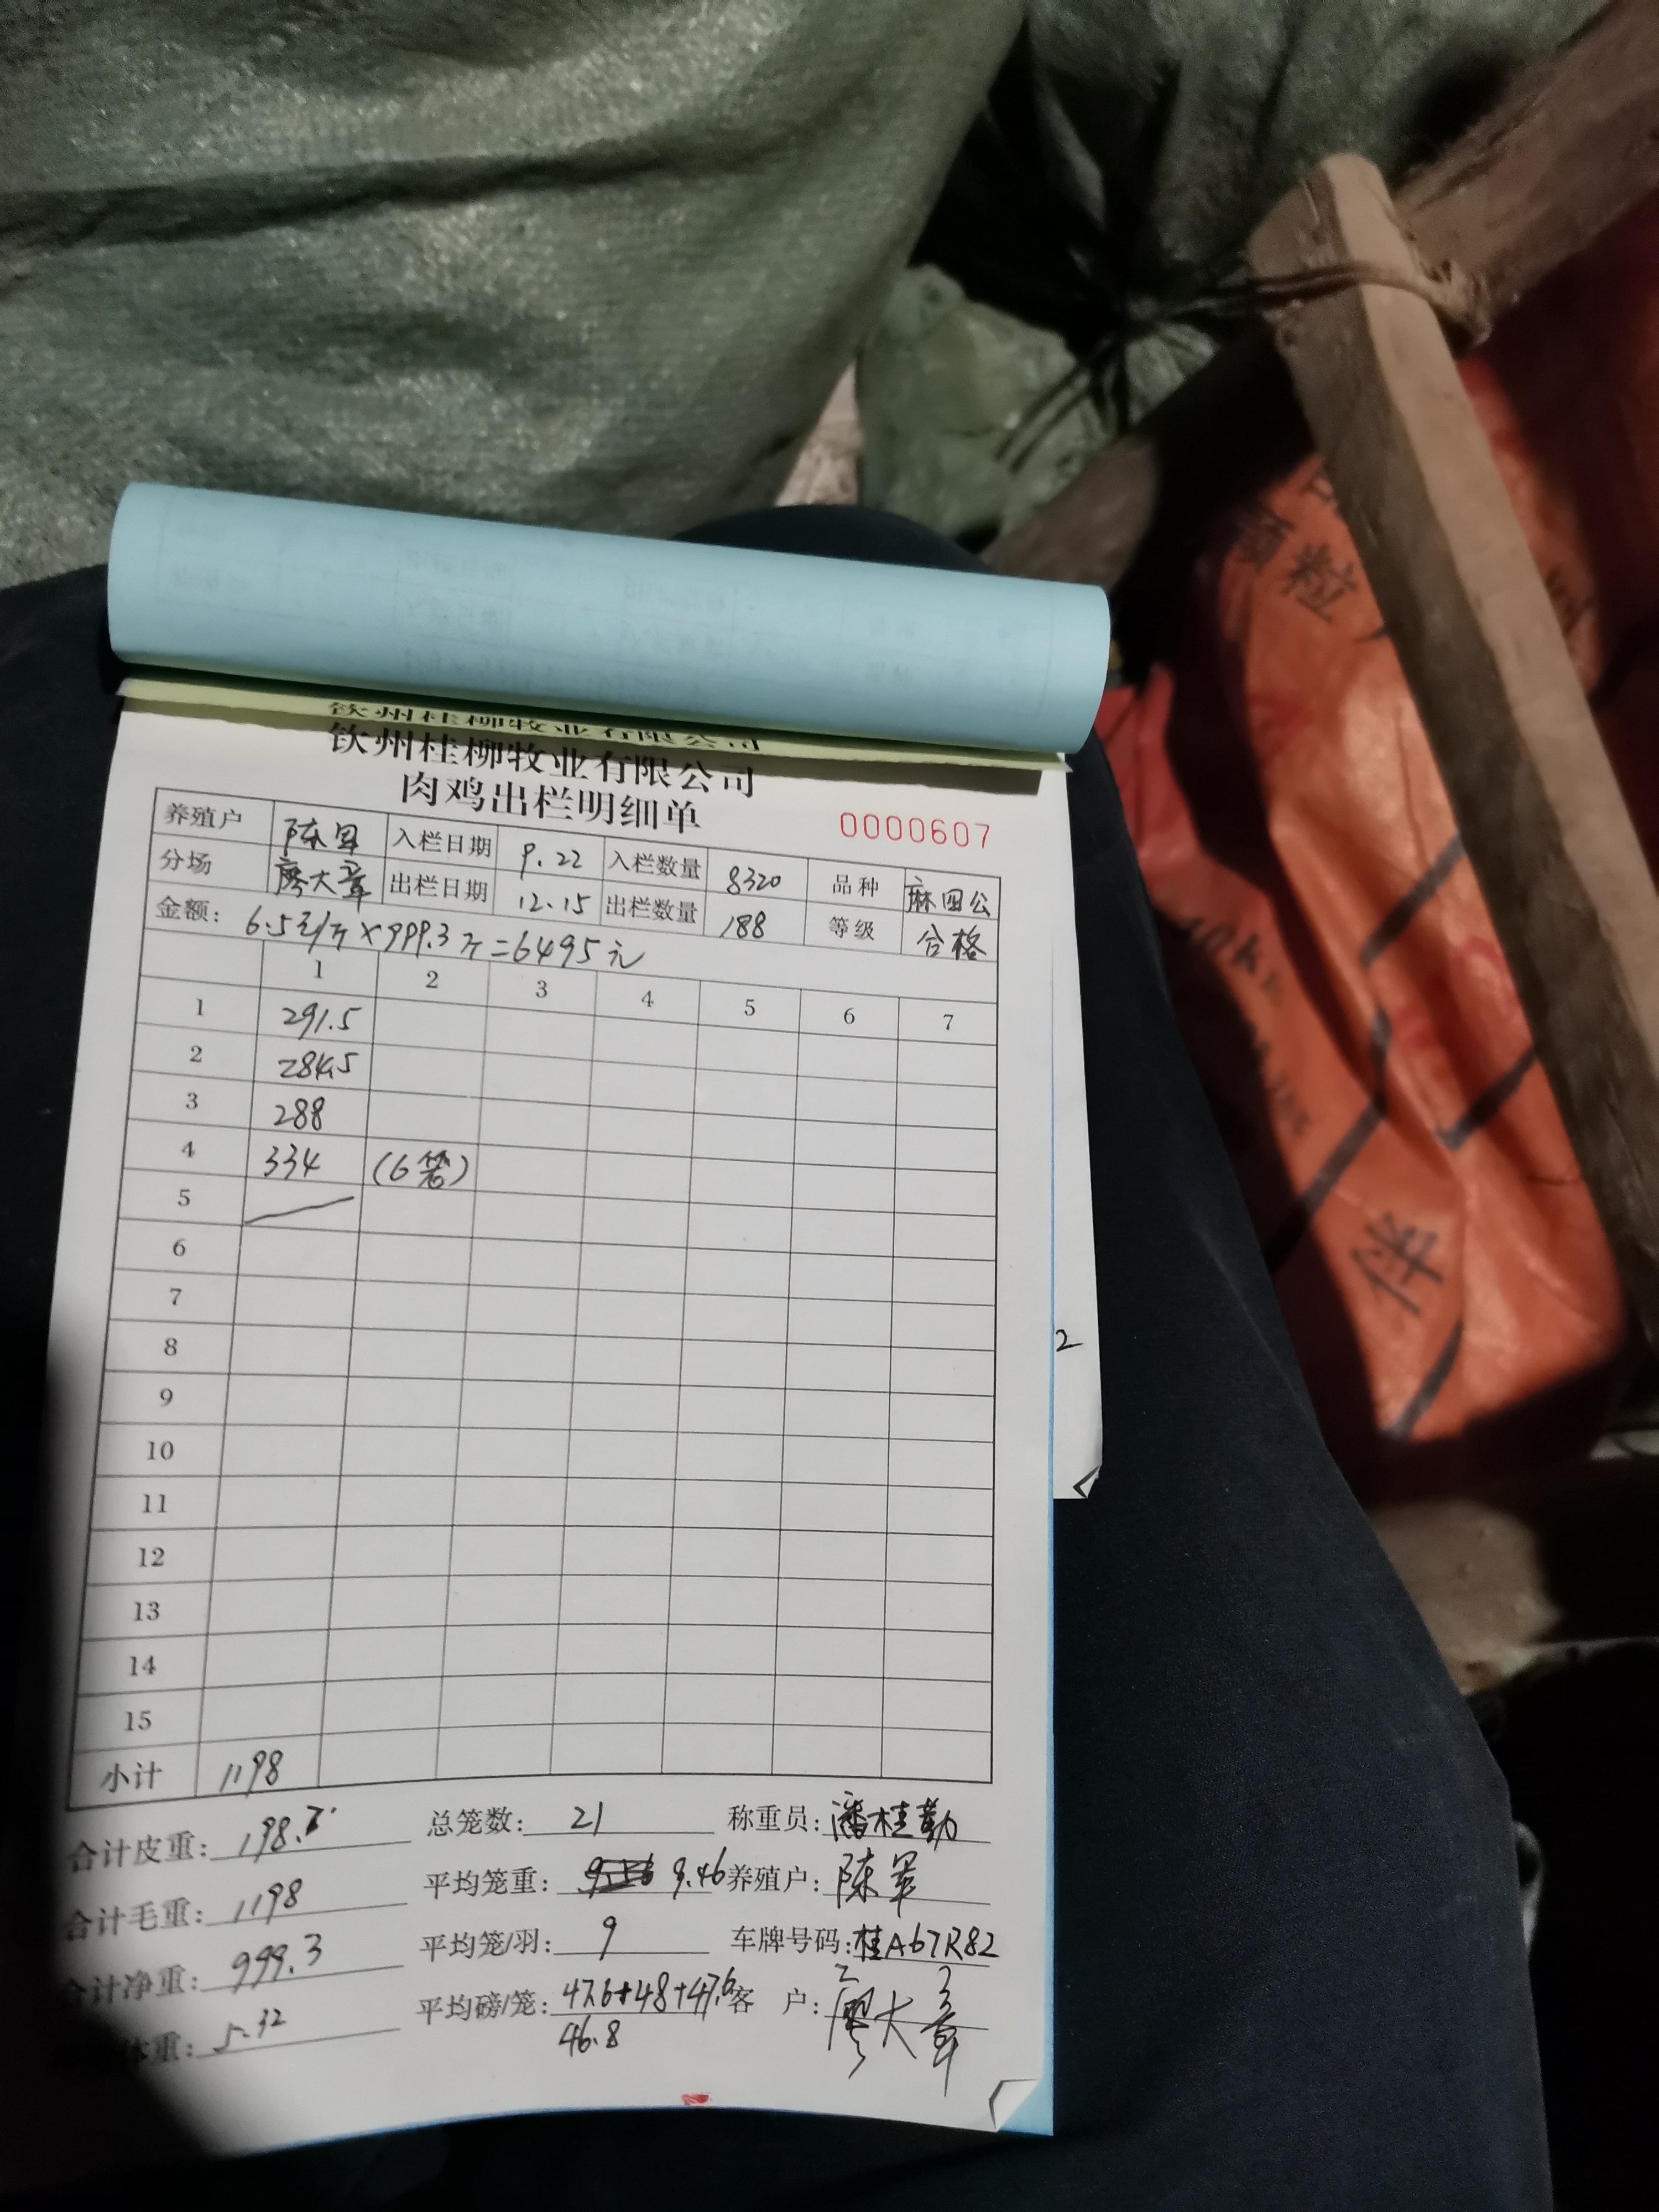 钦州桂柳牧业有限公司
钦州桂柳牧业有限公司
肉鸡出栏明细单
0000607
养殖户 陈军 入栏日期 9.22 入栏数量 8320 品种 麻四公
分场 廖大章 出栏日期 12.15 出栏数量 188 等级 合格
金额: 6.5元/斤×999.3斤=6495元
1 2 3 4 5 6 7
1 291.5
2 284.5
3 288
4 334 (6笼)
5
6
7
8
9
10
11
12
13
14
15
小计 1198
合计皮重: 198.7 总笼数: 21 称重员: 潘桂勤
合计毛重: 1198 平均笼重: 9.46 养殖户: 陈军
合计净重: 999.3 平均笼/羽: 9 车牌号码: 桂A67R82
体重: 5.32 平均磅/笼: 47.6+48+47.6 客 户: 廖大章
46.8
2
颗粒
伴